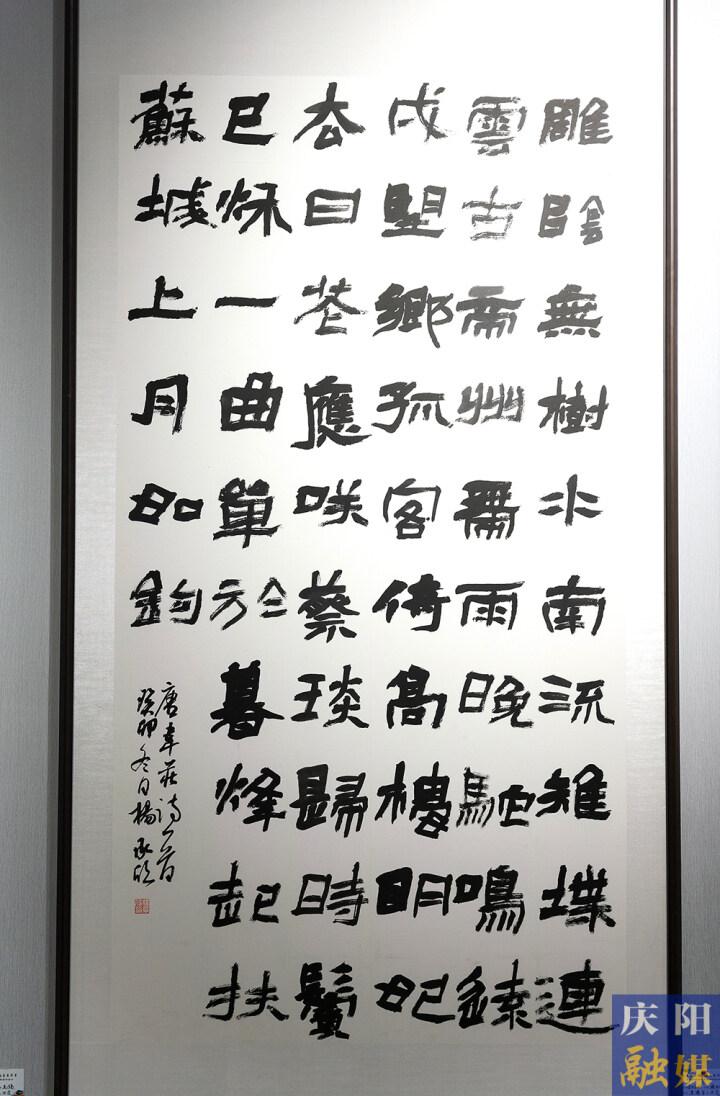 雕陰無樹水南流雉堞連
雲古帝州帶雨晚駝鳴遠
戍望鄉孤客倚高樓明妃
去日花應咲蔡琰歸時鬢
已秋一曲單於暮烽起扶
蘇城上月如鉤
唐韋莊詩一首
癸卯冬日楊
庆阳
融媒